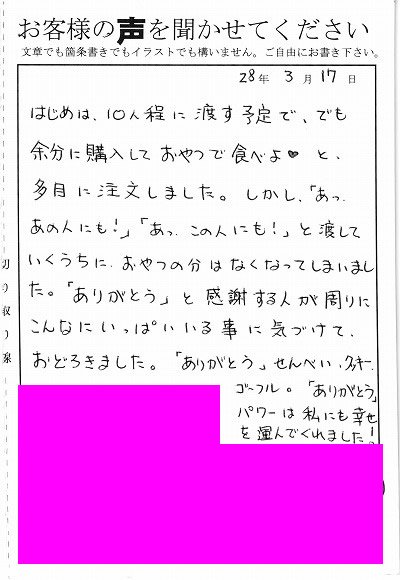 お客様の声を聞かせてください
文章でも箇条書きでもイラストでも構いません。ご自由にお書き下さい。
28年 3月 17日
はじめは、10人程に渡す予定で、でも
余分に購入しておやつで食べよ♥と、
多目に注文しました。しかし、「あっ、
あの人にも!」「あっ、この人にも!」と渡して
いくうちに、おやつの分はなくなってしまいまし
た。「ありがとう」と感謝する人が周りに
こんなにいっぱいいる事に気づけて、
おどろきました。「ありがとう」せんべい、クッキー、
ゴーフル。「ありがとう」
パワーは私にも幸せ
を運んでくれました!。
切り取り線